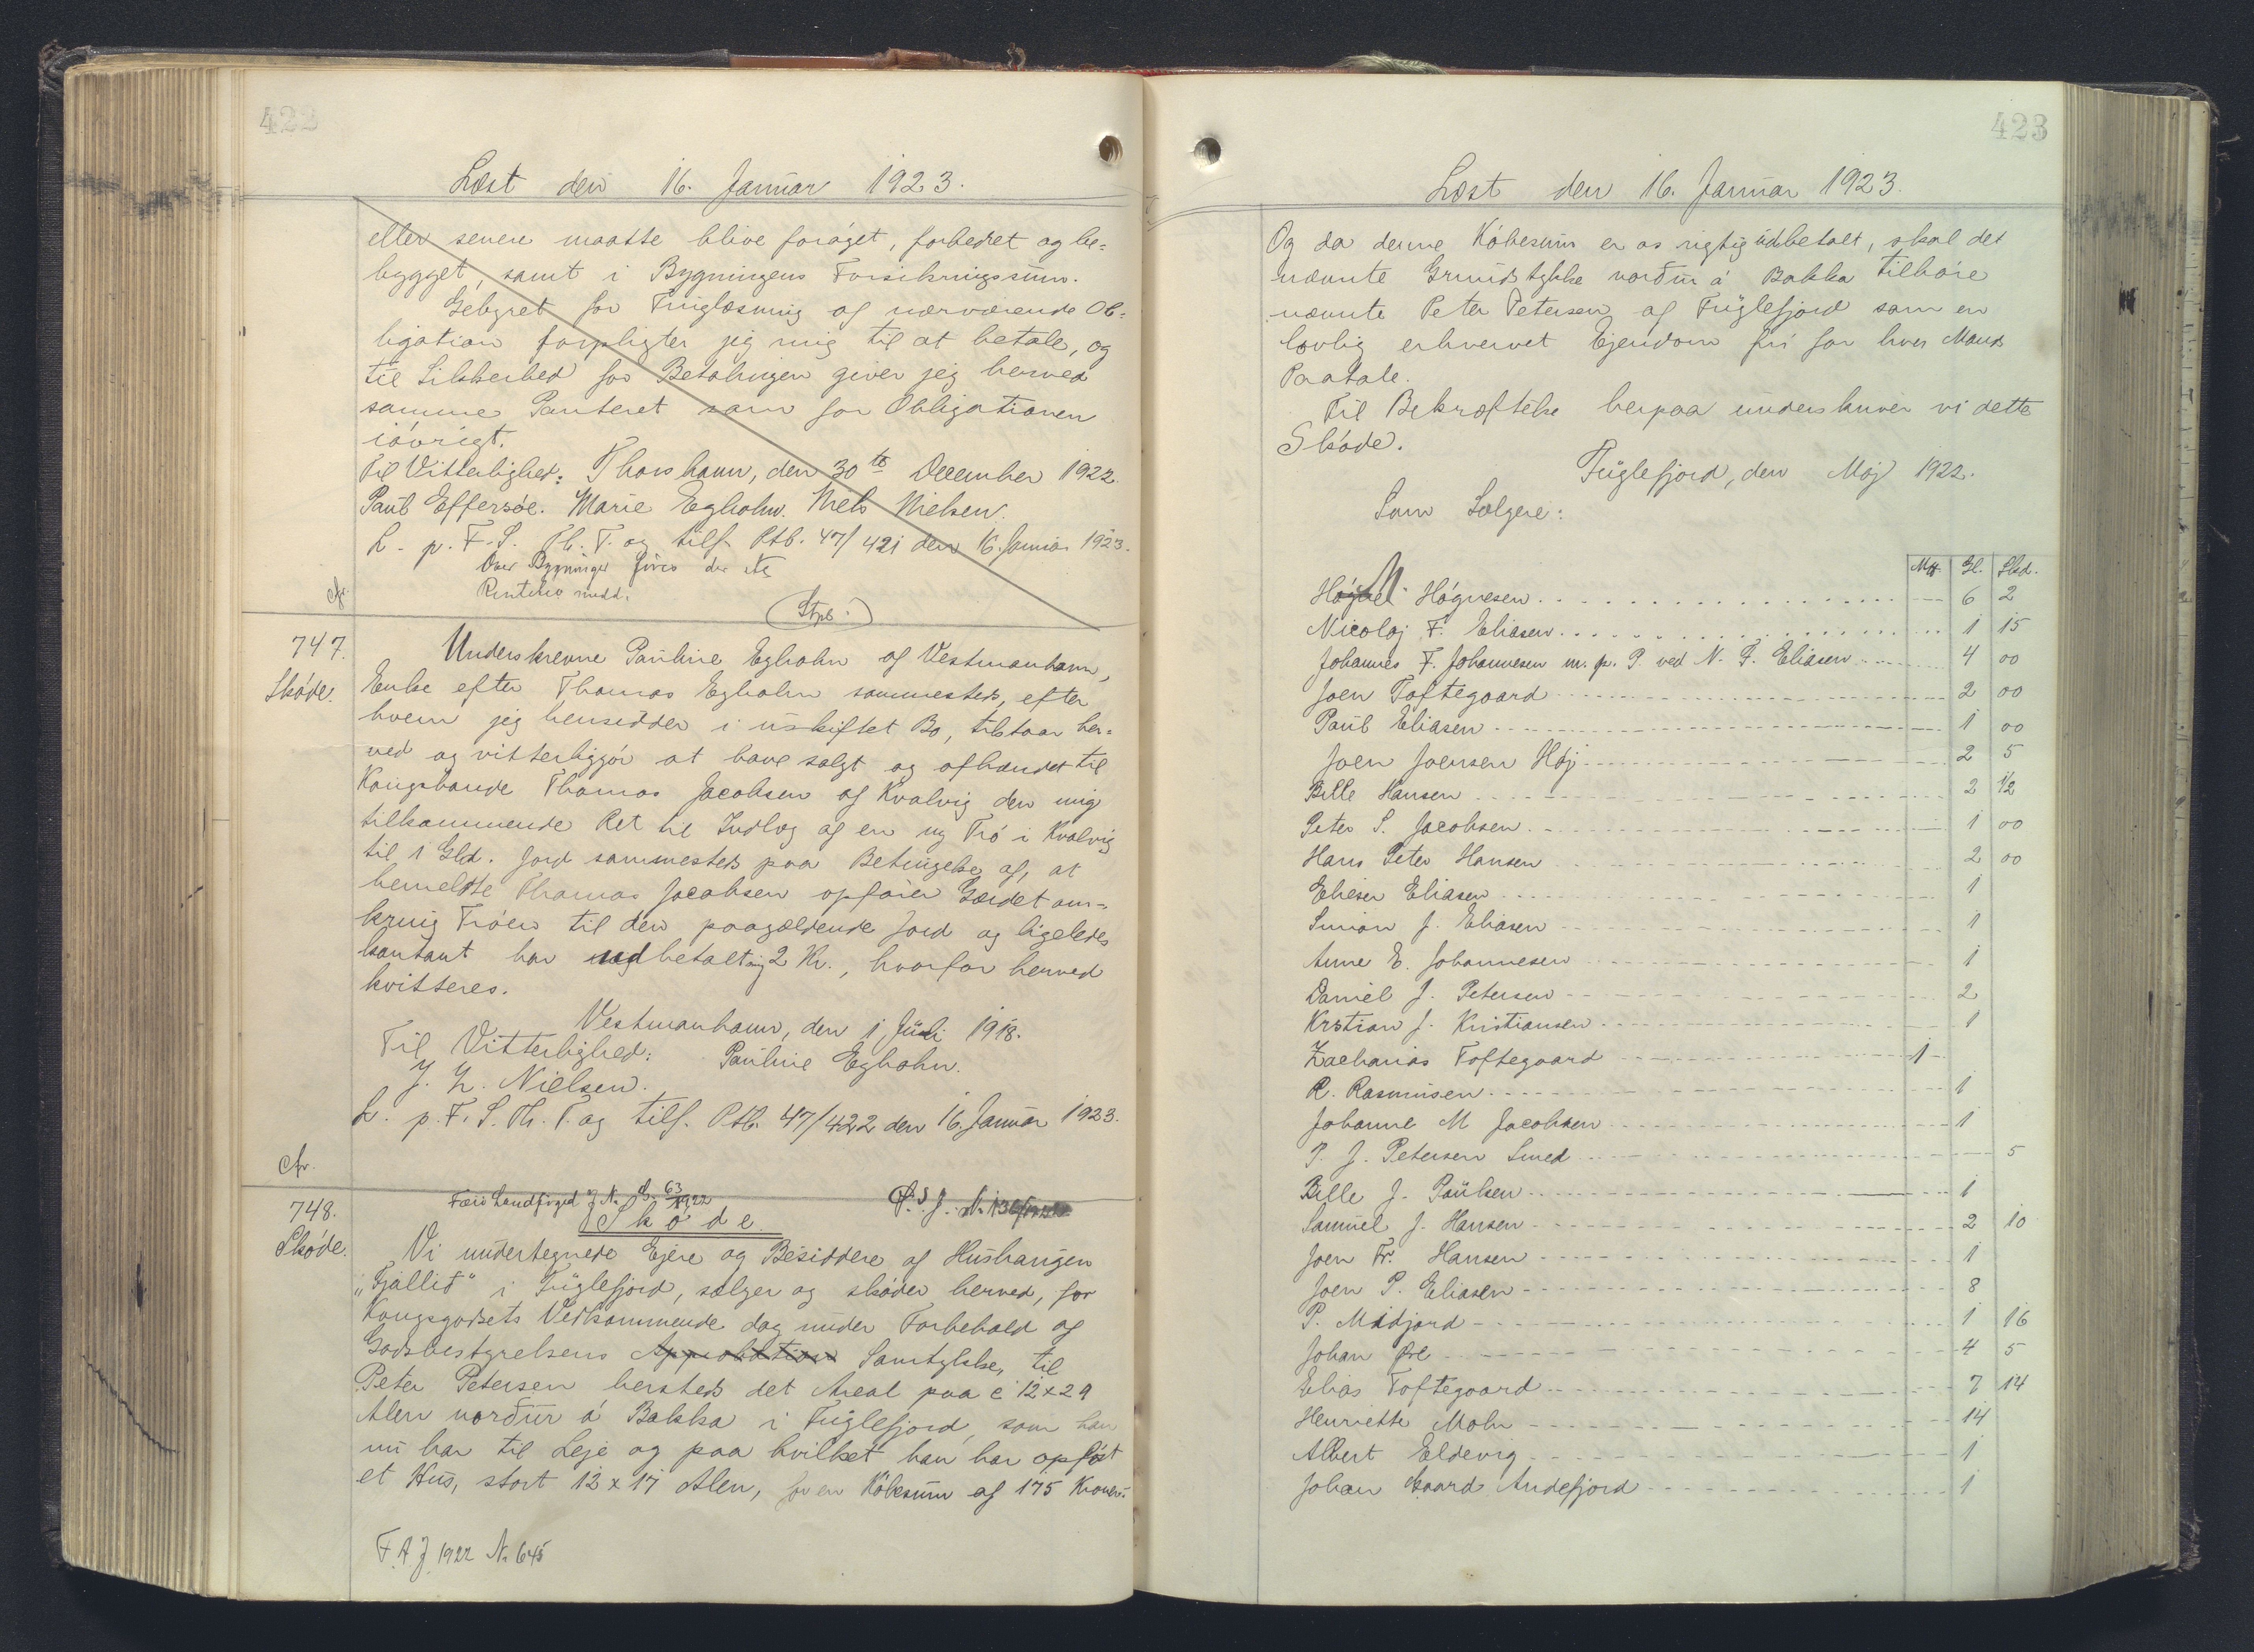 422
Læst den 16. Januar 1923.
eller senere maatte blive forøget, forbedret og be=
bygget, samt i Bygningens Forsikringssum.
Gebyret for Tinglæsning af nærværende Ob=
ligation forpligter jeg mig til at betale, og
til Sikkerhed for Betalingen giver jeg herved
samme Panteret som for Obligationen
iøvrigt.
Til Vitterlighed: Thorshavn, den 30te December 1922.
Paul Effersøe. Marie Egholm. Niels Nielsen.
L. p. F. S. Th. T. og tilf. Ptb. 47/421 den 16. Januar 1923.
Over Bygninger føres der
Cfr.
747.
Skøde.
Underskrevne Pauline Egholm af Vestmanhavn,
Enke efter Thomas Egholm sammesteds, efter
hvem jeg hensidder i uskiftet Bo, tilstaar her=
ved og vitterliggør at have solgt og afhændet til
Kongsbonde Thomas Jacobsen af Kvalvig den mig
tilkommende Ret til Indlæg af en ny Trø i Kvalvig
til 1 Gld. Jord sammesteds paa Betingelse af, at
bemeldte Thomas Jacobsen opfører Gærdet om=
kring Trøen til den paagældende Jord og ligeledes
kontant har udbetalt mig 2 Kr., hvorfor herved
kvitteres.
Vestmanhavn, den 1 Juli 1918.
Til Vitterlighed: Pauline Egholm.
J. H. Nielsen.
L. p. F. S. Th. T. og tilf. Ptb. 47/422 den 16. Januar 1923.
Cfr.
748.
Skøde.
Færø Landfoged J. N. 63/1922
Skøde.
Vi undertegnede Ejere og Besiddere af Hushaugen
„Fjallið" i Fuglefjord, sælger og skøder herved, for
Kongsgodsets Vedkommende dog under Forbehold af
Godsbestyrelsens Approbation Samtykke, til
Peter Petersen hersteds det Areal paa c 12 x 29
Alen norður á Bakka i Fuglefjord, som han
nu har til Leje og paa hvilket han har opført
et Hus, stort 12 x 17 Alen, for en Købesum af 175 Kroner.
F. A. J. 1922 N. 645
423
Læst den 16. Januar 1923.
Og da denne Købesum er os rigtig udbetalt, skal det
nævnte Grundstykke norður á Bakka tilhøre
nævnte Peter Petersen af Fuglefjord som en
lovlig erhvervet Ejendom fri for hver Mands
Paatale.
Til Bekræftelse herpaa underskriver vi dette
Skøde.
Fuglefjord, den Maj 1922.
Som Sælgere:
Mk. Gl. Skd.
Høgnesen 6 2
Nicolaj F. Eliasen 1 15
Johannes F. Johannesen m. p. P. ved N. F. Eliasen 4 00
Joen Toftegaard 2 00
Paul Eliasen 1 00
Joen Joensen Høj 2 5
Bille Hansen 2 1/2
Peter S. Jacobsen 1 00
Hans Peter Hansen 2 00
Elieser Eliasen 1
Simon J. Eliasen 1
Anne E. Johannesen 1
Daniel J. Petersen 2
Krstian J. Kristiansen 1
Zacharias Toftegaard 1
R. Rasmusen 1
Johanne M Jacobsen 1
P. J. Petersen Smed 5
Bille J. Paulsen 1
Samuel J. Hansen 2 10
Joen Fr. Hansen 1
Joen P. Eliasen 8
P. Midjord 1 16
Johan Øre 4 5
Elias Toftegaard 7 14
Henriette Mohr 14
Albert Eldevig 1
Johan Gaard Andefjord 1